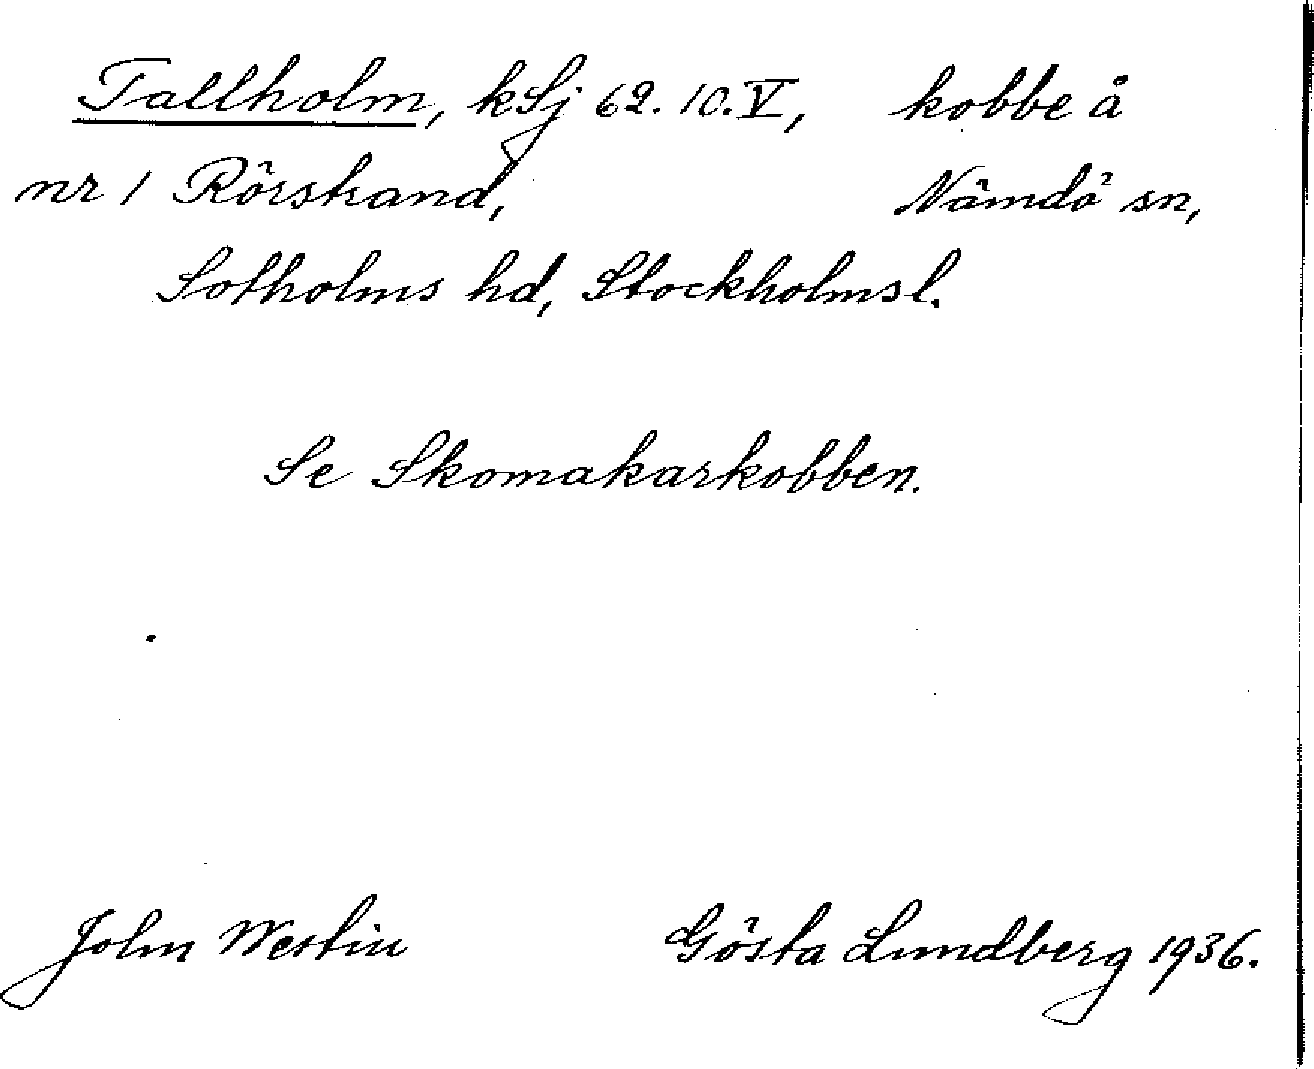 Tallholm, kSj 62. 10. V, kobbe å
nr 1 Rörstrand, Nämdö sn,
Sotholms hd, Stockholmsl.
Se Skomakarkobben.
John Westin Gösta Lundberg 1936.